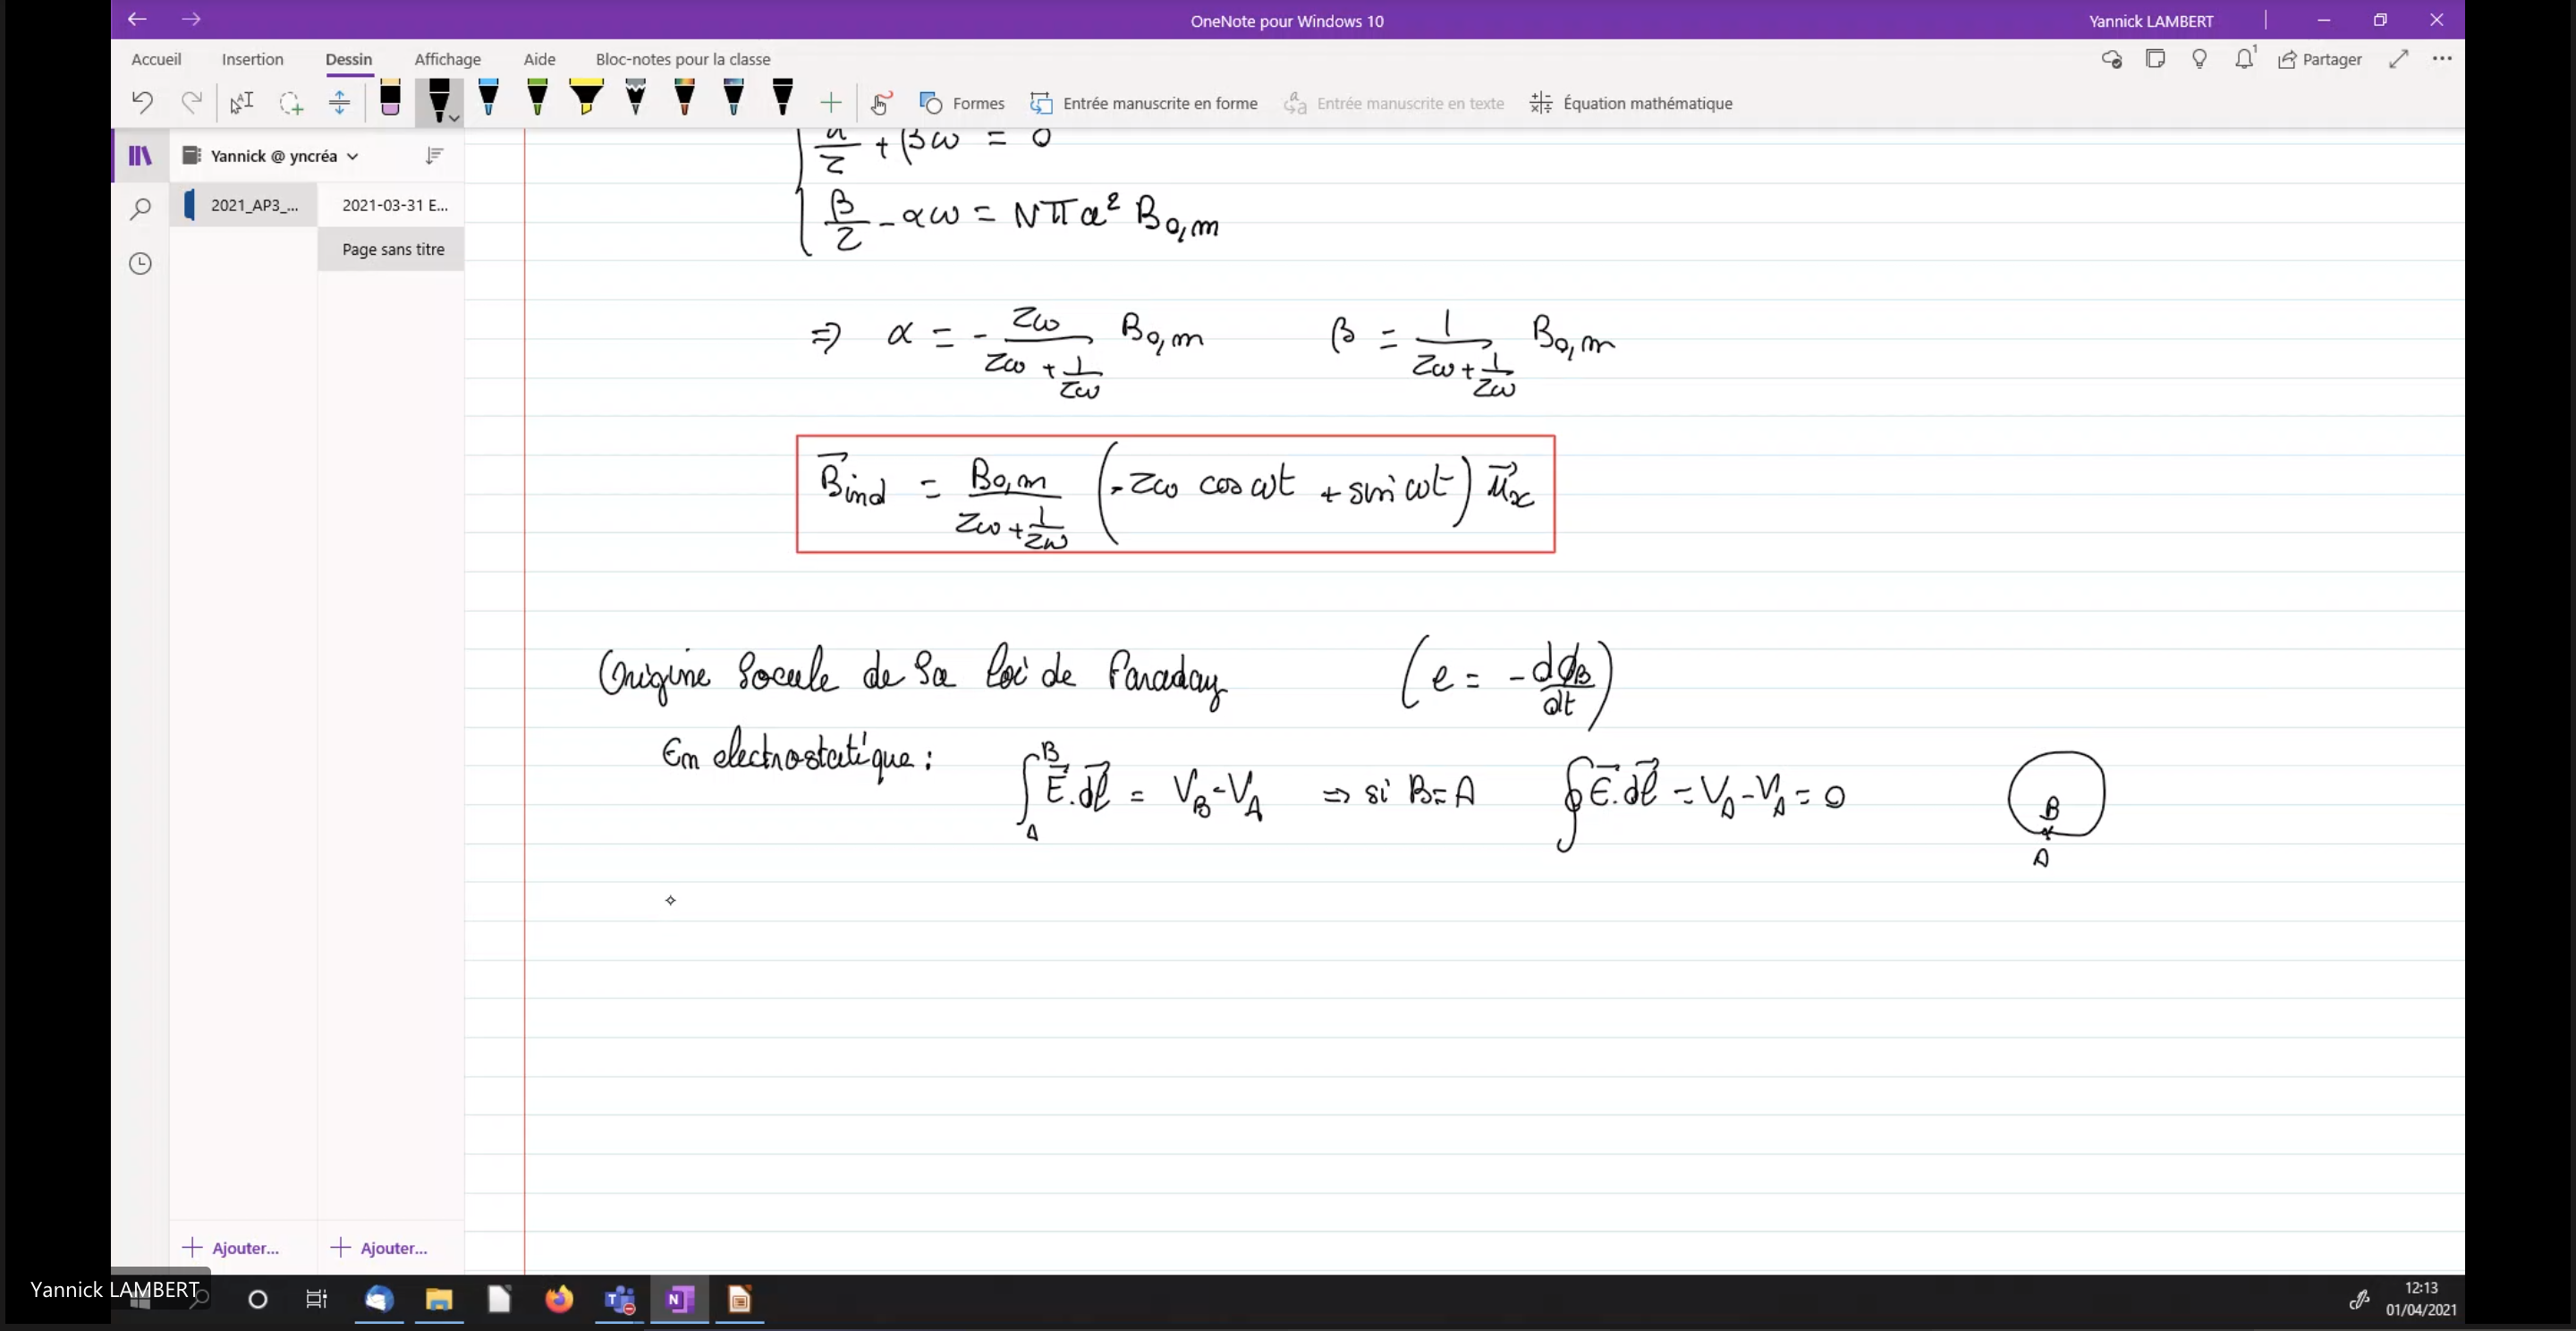 OneNote pour Windows 10
Yannick LAMBERT
Accueil Insertion Dessin Affichage Aide Bloc-notes pour la classe
1 Partager
Formes Entrée manuscrite en forme Entrée manuscrite en texte Équation mathématique
Yannick @ yncréa
2021_AP3_... 2021-03-31 E...
Page sans titre
α/τ + βω = 0
β/τ - αω = Nπa² B0,m
⇒ α = - τω/(τω + 1/τω) B0,m β = 1/(τω + 1/τω) B0,m
B⃗ind = B0,m/(τω + 1/τω) (-τω cos ωt + sin ωt) u⃗x
Origine locale de la loi de Faraday (e = - dϕB/dt)
En electrostatique : ∫_A^B E⃗.dl⃗ = VB - VA ⇒ si B = A ∮ E⃗.dl⃗ = VA - VA = 0
B
A
Ajouter... Ajouter...
Yannick LAMBERT
12:13
01/04/2021